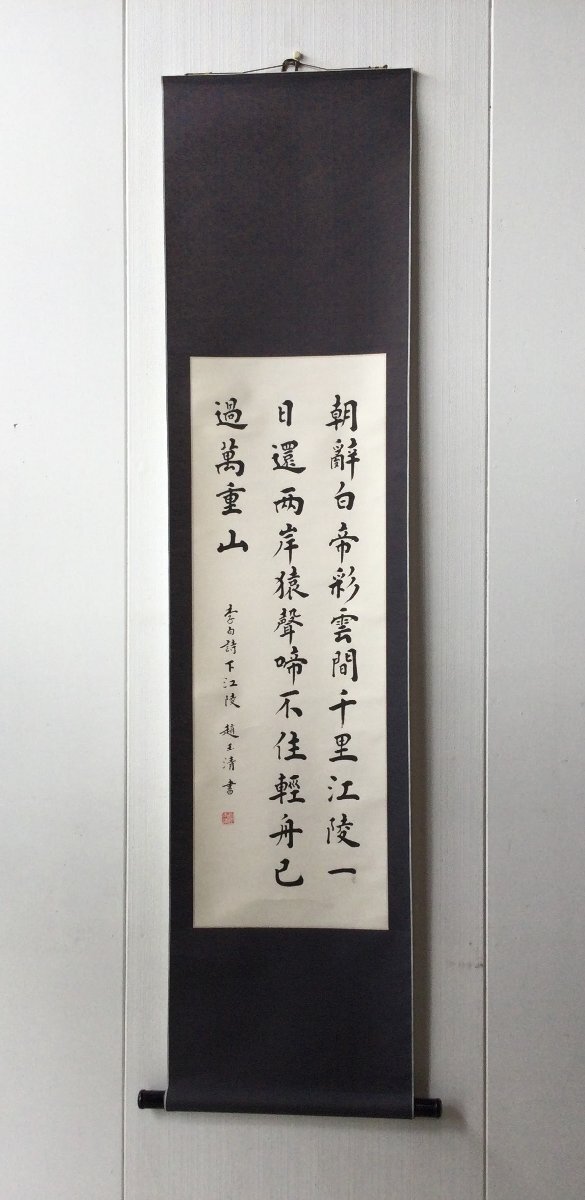 朝辭白帝彩雲間千里江陵一
日還两岸猿聲啼不住輕舟已
過萬重山
李白詩下江陵 趙玉清書